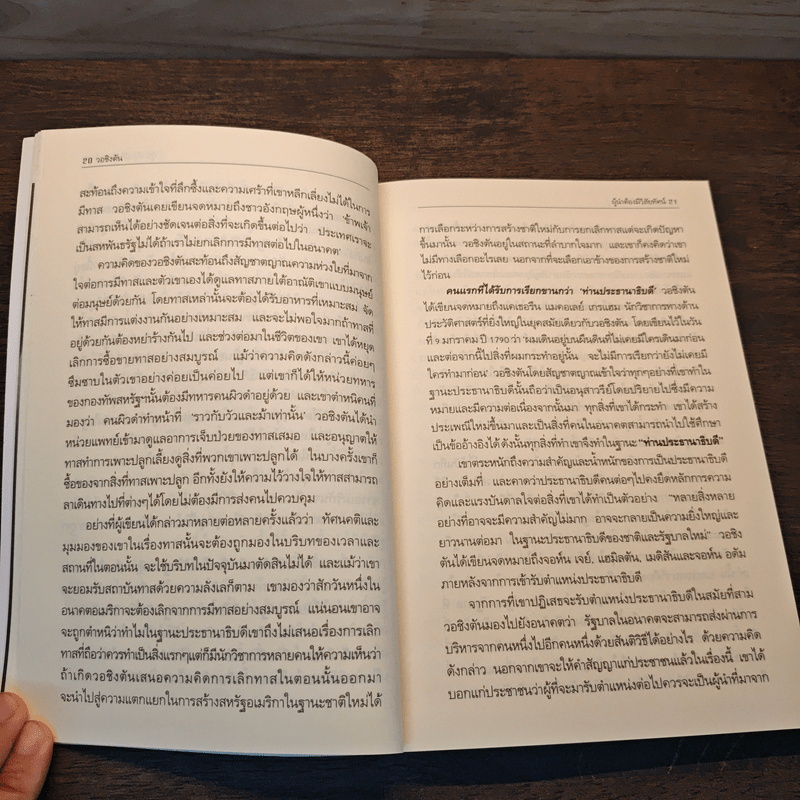 20 วอชิงตัน
สะท้อนถึงความเข้าใจที่ลึกซึ้งและความเศร้าที่เขาหลีกเลี่ยงไม่ได้ในการ
มีทาส วอชิงตันเคยเขียนจดหมายถึงชาวอังกฤษผู้หนึ่งว่า 'ข้าพเจ้า
สามารถเห็นได้อย่างชัดเจนต่อสิ่งที่จะเกิดขึ้นต่อไปว่า ประเทศเราจะ
เป็นสหพันธรัฐไม่ได้ถ้าเราไม่ยกเลิกการมีทาสต่อไปในอนาคต'
ความคิดของวอชิงตันสะท้อนถึงสัญชาตญาณความห่วงใยที่มาจาก
ใจต่อการมีทาสและตัวเขาเองได้ดูแลทาสภายใต้อาณัติเขาแบบมนุษย์
ต่อมนุษย์ด้วยกัน โดยทาสเหล่านั้นจะต้องได้รับอาหารที่เหมาะสม จัด
ให้ทาสมีการแต่งงานกันอย่างเหมาะสม และจะไม่พอใจมากถ้าทาสที่
อยู่ด้วยกันต้องหย่าร้างกันไป และช่วงต่อมาในชีวิตของเขา เขาได้หยุด
เลิกการซื้อขายทาสอย่างสมบูรณ์ แม้ว่าความคิดดังกล่าวนี้ค่อยๆ
ซึมซาบในตัวเขาอย่างค่อยเป็นค่อยไป แต่เขาก็ได้ให้หน่วยทหาร
ของกองทัพสหรัฐฯนั้นต้องมีทหารคนผิวดำอยู่ด้วย และเขาตำหนิคนที่
มองว่า คนผิวดำทำหน้าที่ 'ราวกับวัวและม้าเท่านั้น' วอชิงตันได้นำ
หน่วยแพทย์เข้ามาดูแลอาการเจ็บป่วยของทาสเสมอ และอนุญาตให้
ทาสทำการเพาะปลูกเลี้ยงดูสิ่งที่พวกเขาเพาะปลูกได้ ในบางครั้งเขาก็
ซื้อของจากสิ่งที่ทาสเพาะปลูก อีกทั้งยังให้ความไว้วางใจให้ทาสสามารถ
ลาเดินทางไปที่ต่างๆได้โดยไม่ต้องมีการส่งคนไปควบคุม
อย่างที่ผู้เขียนได้กล่าวมาหลายต่อหลายครั้งแล้วว่า ทัศนคติและ
มุมมองของเขาในเรื่องทาสนั้นจะต้องถูกมองในบริบทของเวลาและ
สถานที่ในตอนนั้น จะใช้บริบทในปัจจุบันมาตัดสินไม่ได้ และแม้ว่าเขา
จะยอมรับสถาบันทาสด้วยความลังเลก็ตาม เขามองว่าสักวันหนึ่งใน
อนาคตอเมริกาจะต้องเลิกจากการมีทาสอย่างสมบูรณ์ แน่นอนเขาอาจ
จะถูกตำหนิว่าทำไมในฐานะประธานาธิบดีเขาถึงไม่เสนอเรื่องการเลิก
ทาสที่ถือว่าควรทำเป็นสิ่งแรกๆแต่ก็มีนักวิชาการหลายคนให้ความเห็นว่า
ถ้าเกิดวอชิงตันเสนอความคิดการเลิกทาสในตอนนั้นออกมา
จะนำไปสู่ความแตกแยกในการสร้างสหรัฐอเมริกาในฐานะชาติใหม่ได้
ผู้นำต้องมีวิสัยทัศน์ 21
การเลือกระหว่างการสร้างชาติใหม่กับการยกเลิกทาสแต่จะเกิดปัญหา
ขึ้นมานั้น วอชิงตันอยู่ในสถานะที่ลำบากใจมาก และเขาก็คงคิดว่าเขา
ไม่มีทางเลือกอะไรเลย นอกจากที่จะเลือกเอาข้างของการสร้างชาติใหม่
ไว้ก่อน
คนแรกที่ได้รับการเรียกขานกว่า 'ท่านประธานาธิบดี' วอชิงตัน
ได้เขียนจดหมายถึงแคเธอรีน แมคอเลย์ เกรแฮม นักวิชาการทางด้าน
ประวัติศาสตร์ที่ยิ่งใหญ่ในยุคสมัยเดียวกับวอชิงตัน โดยเขียนไว้ในวัน
ที่ 9 มกราคม ปี 1790 ว่า 'ผมเดินอยู่บนผืนดินที่ไม่เคยมีใครเดินมาก่อน
และต่อจากนี้ไปสิ่งที่ผมกระทำอยู่นั้น จะไม่มีการเรียกว่ายังไม่เคยมี
ใครทำมาก่อน' วอชิงตันโดยสัญชาตญาณเข้าใจว่าทุกๆอย่างที่เขาทำใน
ฐานะประธานาธิบดีนั้นถือว่าเป็นอนุสาวรีย์โดยปริยายไปซึ่งมีความ
หมายและมีความต่อเนื่องจากนั้นมา ทุกสิ่งที่เขาได้กระทำ เขาได้สร้าง
ประเพณีใหม่ขึ้นมาและเป็นสิ่งที่คนในอนาคตสามารถนำไปใช้ศึกษา
เป็นข้ออ้างอิงได้ ดังนั้นทุกสิ่งที่ทำเขาจึงทำในฐานะ "ท่านประธานาธิบดี"
เขาตระหนักถึงความสำคัญและน้ำหนักของการเป็นประธานาธิบดี
อย่างเต็มที่ และคาดว่าประธานาธิบดีคนต่อๆไปคงยึดหลักการความ
คิดและแรงบันดาลใจต่อสิ่งที่เขาได้ทำเป็นตัวอย่าง "หลายสิ่งหลาย
อย่างที่อาจจะมีความสำคัญไม่มาก อาจจะกลายเป็นความยิ่งใหญ่และ
ยาวนานต่อมา ในฐานะประธานาธิบดีของชาติและรัฐบาลใหม่" วอชิง
ตันได้เขียนจดหมายถึงจอห์น เจย์, แฮมิลตัน, เมดิสันและจอห์น อดัม
ภายหลังจากการเข้ารับตำแหน่งประธานาธิบดี
จากการที่เขาปฏิเสธจะรับตำแหน่งประธานาธิบดีในสมัยที่สาม
วอชิงตันมองไปยังอนาคตว่า รัฐบาลในอนาคตจะสามารถส่งผ่านการ
บริหารจากคนหนึ่งไปอีกคนหนึ่งด้วยสันติวิธีได้อย่างไร ด้วยความคิด
ดังกล่าว นอกจากเขาจะให้คำสัญญาแก่ประชาชนแล้วในเรื่องนี้ เขาได้
บอกแก่ประชาชนว่าผู้ที่จะมารับตำแหน่งต่อไปควรจะเป็นผู้นำที่มาจาก